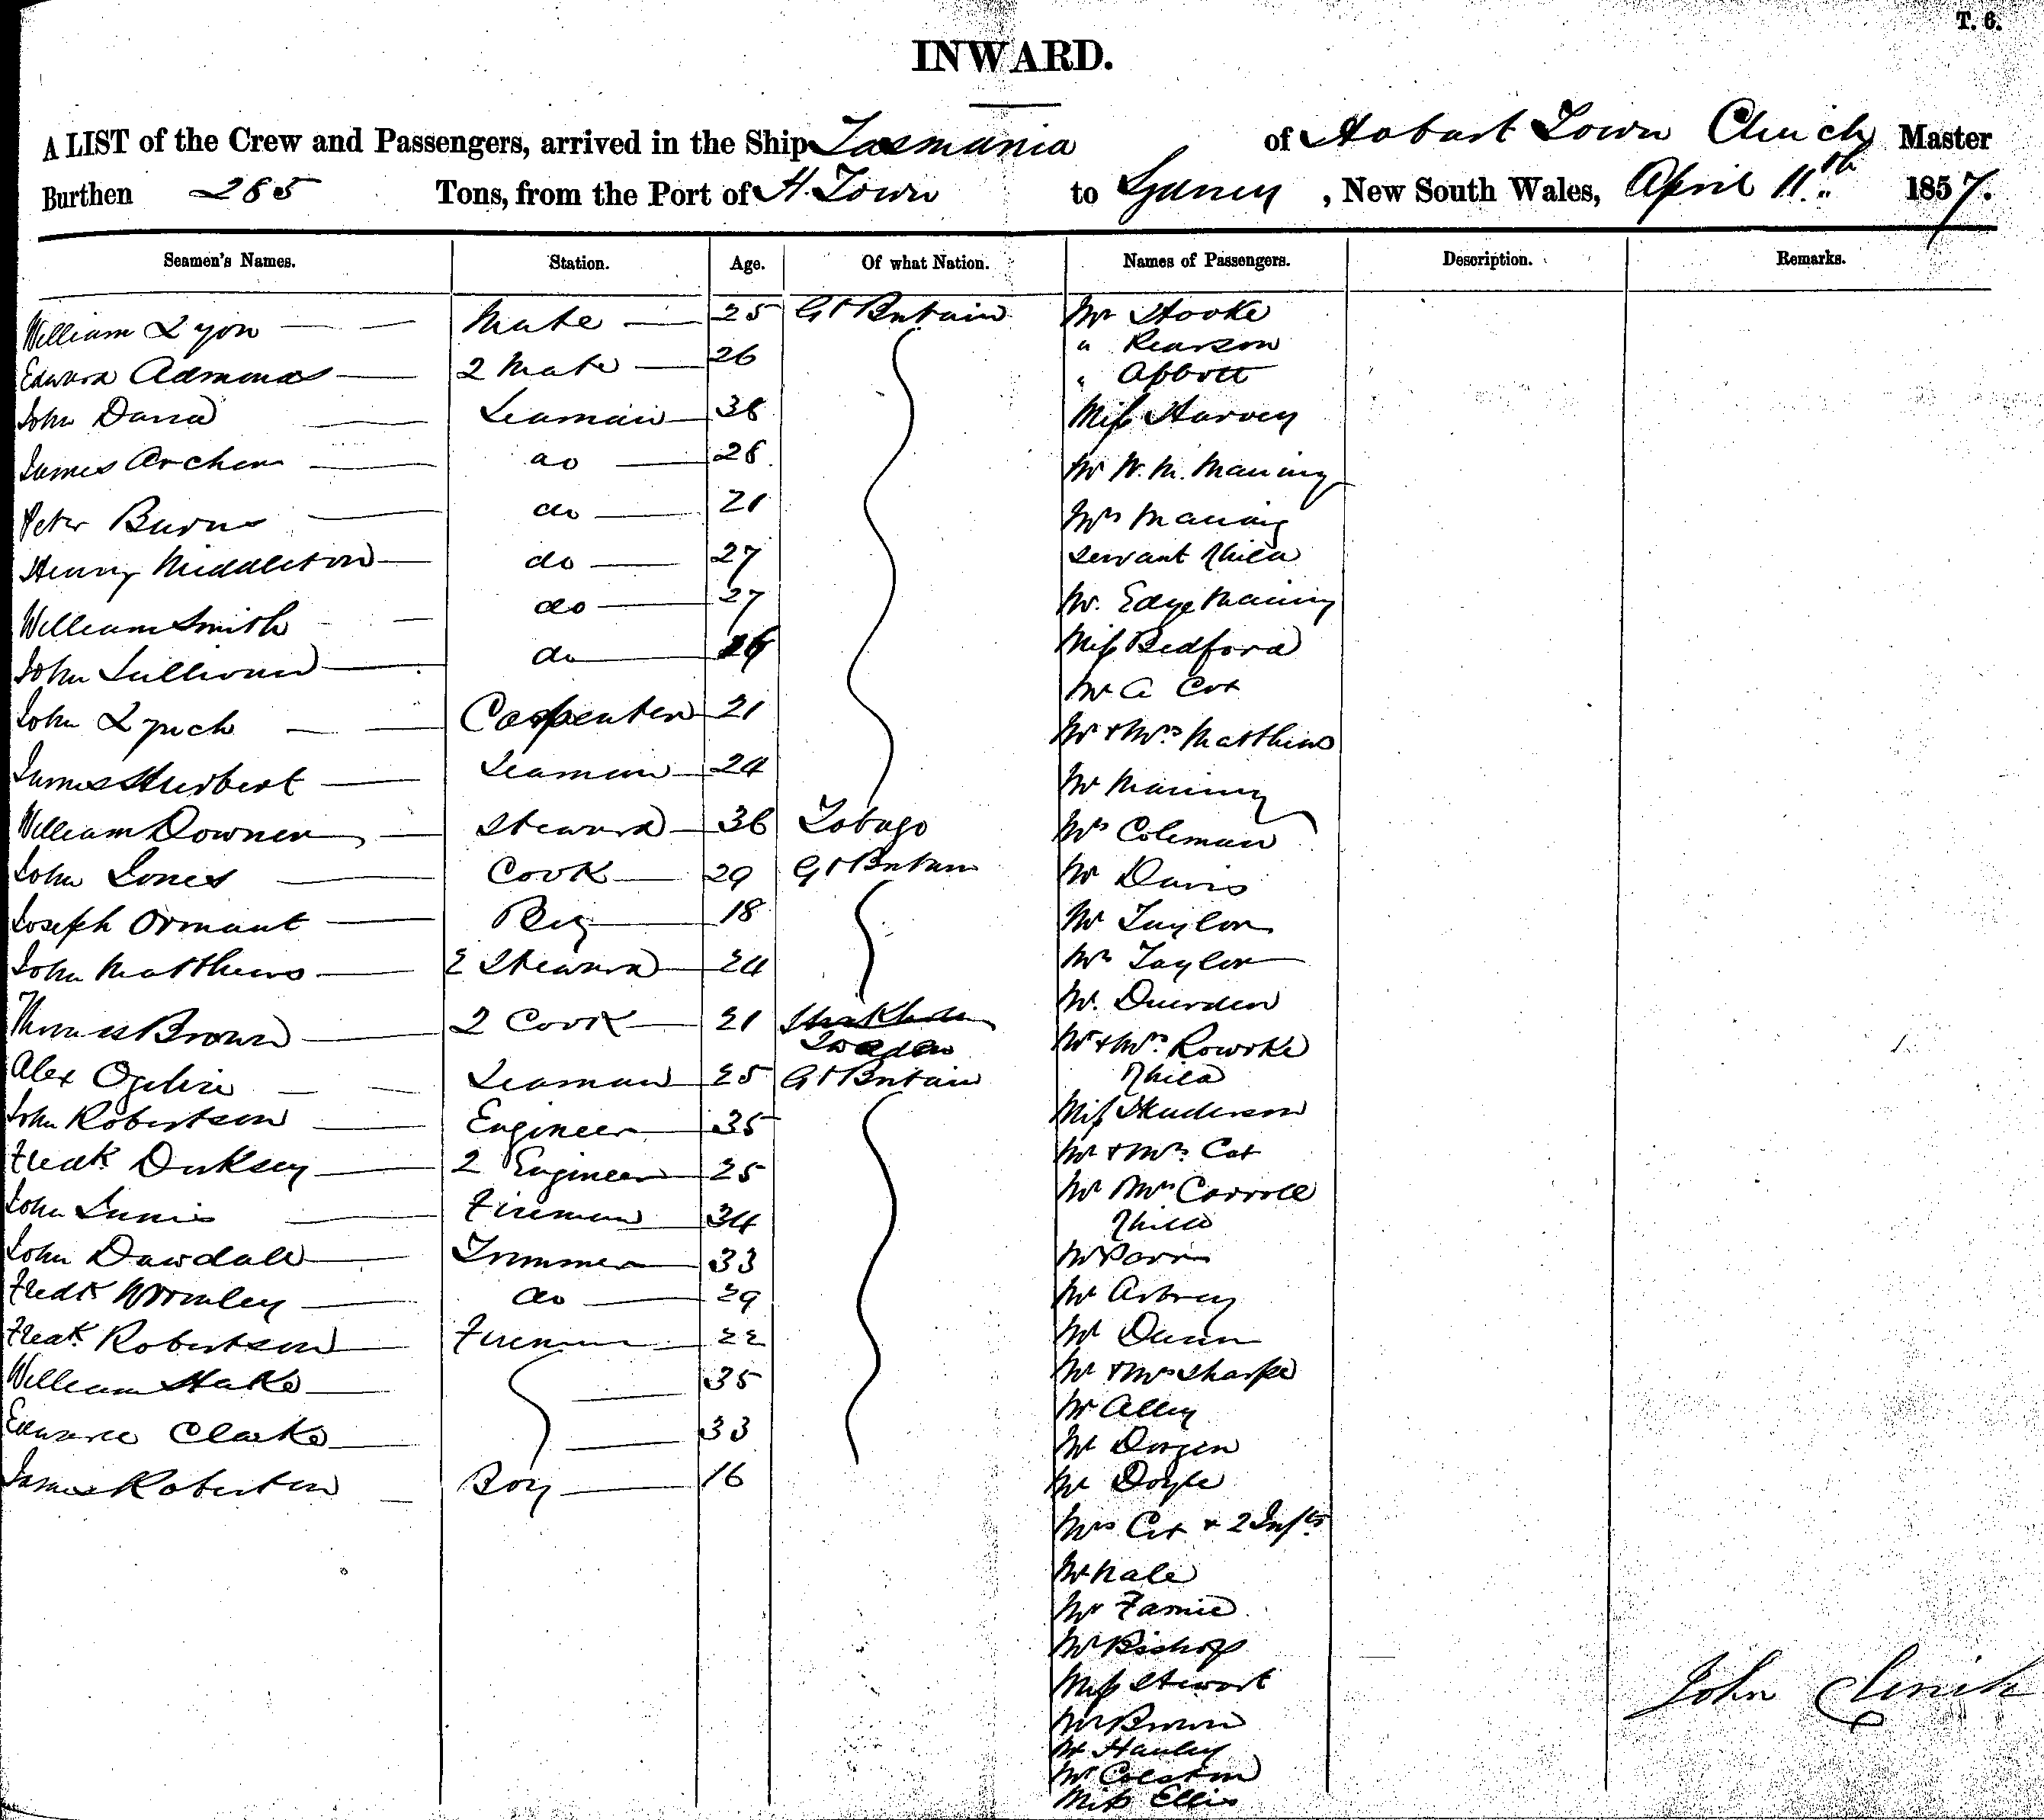 T. 6.
INWARD.
A LIST of the Crew and Passengers, arrived in the Ship Tasmania of Hobart Town Clinch Master
Burthen 285 Tons, from the Port of H. Town to Sydney, New South Wales, April 11th 1857.
Seamen's Names. Station. Age. Of what Nation. Names of Passengers. Description. Remarks.
William Lyon Mate 25 Gt Britain Mr Hooke
Edward Admonds 2 Mate 26 " Pearson
" Abbott
John David Seaman 38 Miss Harvey
James Archer do 28 Mr W. M. Maning
Peter Burns do 21 Mrs Maning
Henry Middleton do 27 Servant Child
William Smith do 27 Mr. Edye Maning
John Sullivan do Miss Bedford
Mr A Cox
John Lynch Carpenter 21 Mr & Mrs Matthews
James Hurbert Seaman 24 Mr Maning
William Downer Steward 36 Tobago Mrs Coleman
John Jones Cook 29 Gt Britain Mr Davis
Joseph Ormant Boy 18 Mr Taylor
John Matthews 2 Steward 24 Mrs Taylor
Mr. Duerden
Thomas Brown 2 Cook 21 Sweden Mr & Mrs Rowrke
Alex Ogilvie Seaman 25 Gt Britain Child
John Robertson Engineer 35 Miss Henderson
Fredk Dirksey 2 Engineer 25 Mr & Mrs Cox
John Innis Fireman 34 Mr Mrs Carroll
Child
John Dawdall Trimmer 33 Mr Parr
Fredk Wormley do 29 Mr Arbrey
Fredk Robertson Fireman 22 Mr Dunn
William Hake 35 Mr & Mrs Sharpe
Mr Alley
Edward Clarke 33 Mr Dorgen
James Robertson Boy 16 Mr Doyle
Mrs Cox & 2 Infts
Mr Nale
Mr Famie
Mr Bishop
Miss Stewart
Mr Brown
Mr Hanley
Mr Colston
Miss Ellis
John Clinch